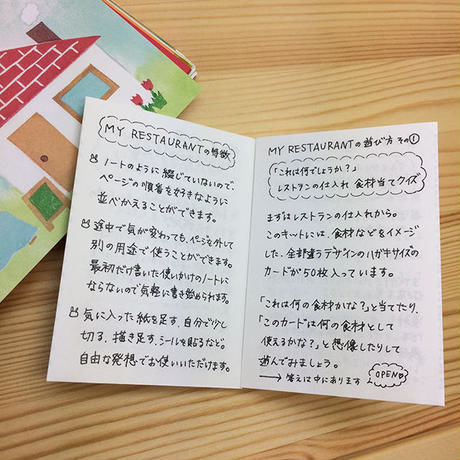 MY RESTAURANTの特徴
ノートのように綴じていないので、
ページの順番を好きなように
並べかえることができます。
途中で気が変わっても、ページを外して
別の用途で使うことができます。
最初だけ書いた使いかけのノートに
ならないので気軽に書き始められます。
気に入った紙を足す、自分で少し
切る、描き足す、シールを貼るなど。
自由な発想でお使いいただけます。
MY RESTAURANTの遊び方 その①
「これは何でしょうか?」
レストランの仕入れ 食材当てクイズ
まずはレストランの仕入れから。
このキットには、食材などをイメージ
した、全部違うデザインのハガキサイズの
カードが50枚入っています。
「これは何の食材かな?」と当てたり、
「このカードは何の食材として
使えるかな?」と想像したりして
遊んでみましょう。
→ 答えは中にあります OPEN